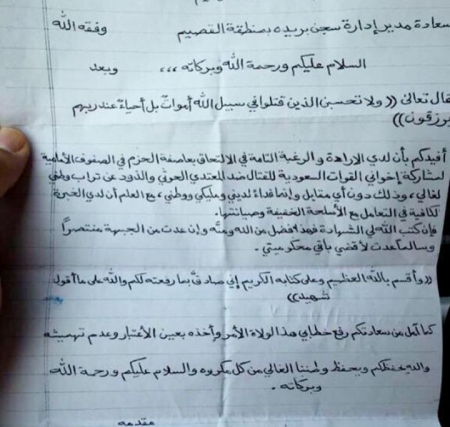 سعادة مدير إدارة سجن بريده بمنطقة القصيم وفقه الله
السلام عليكم ورحمة الله وبركاته ،،، وبعد
قال تعالى (( ولا تحسبن الذين قتلوا في سبيل الله أمواتٌ بل أحياءٌ عند ربهم
يرزقون))
أفيدكم بأن لدي الإرادة والرغبة التامة في الالتحاق بعاصفة الحزم في الصفوف الأمامية
لمشاركة إخواني القوات السعودية للقتال ضد المعتدي الحوثي والذود عن تراب وطني
الغالي، وذلك دون أي مقابل وإنما فداءً لديني ومليكي ووطني، مع العلم أن لدي الخبرة
الكافية في التعامل مع الأسلحة الخفيفة وصيانتها.
فإن كتب الله لي الشهادة فهذا فضل من الله ومنَّه وإن عدت من الجبهة منتصراً
وسالماً عدت لأقضي باقي محكوميتي.
((وأقسم بالله العظيم وعلى كتابه الكريم إني صادقٌ بما رفعته لكم والله على ما أقول
شهيد))
كما آمل من سعادتكم رفع خطابي هذا لولاة الأمر وأخذه بعين الأعتبار وعدم تهميشه
والله يحفظكم ويحفظ وطننا الغالي من كل مكروه والسلام عليكم ورحمة الله
وبركاته.
مقدمه